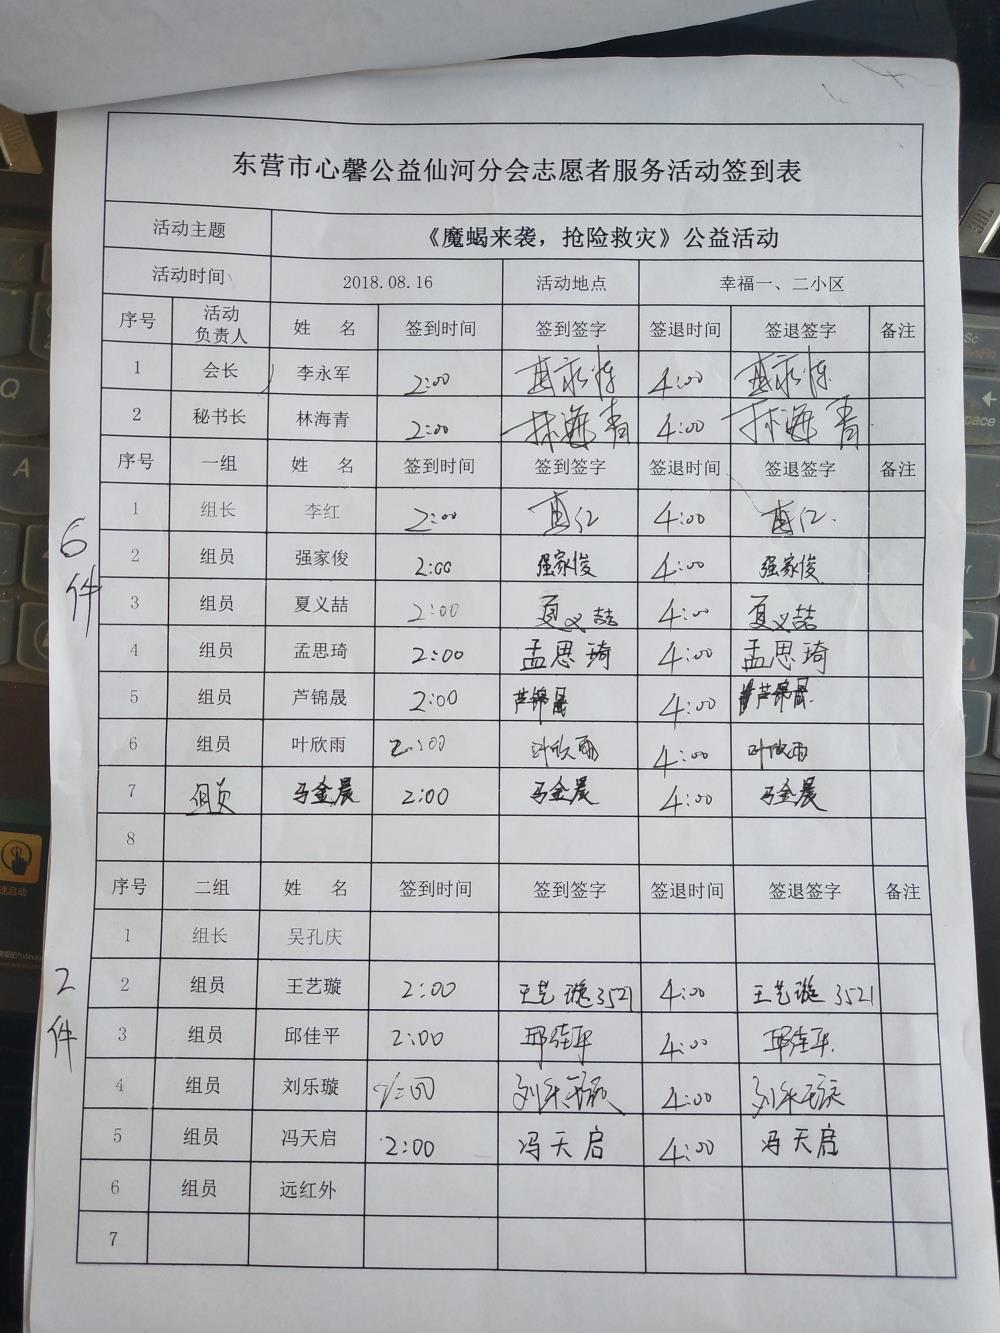 东营市心馨公益仙河分会志愿者服务活动签到表
活动主题 《魔蝎来袭，抢险救灾》公益活动
活动时间 2018.08.16 活动地点 幸福一、二小区
序号 活动负责人 姓 名 签到时间 签到签字 签退时间 签退签字 备注
1 会长 李永军 2:00 4:00
2 秘书长 林海青 2:00 林海青 4:00 林海青
序号 一组 姓 名 签到时间 签到签字 签退时间 签退签字 备注
1 组长 李红 2:00 4:00
2 组员 强家俊 2:00 强家俊 4:00 强家俊
3 组员 夏义喆 2:00 夏义喆 4:00 夏义喆
4 组员 孟思琦 2:00 孟思琦 4:00 孟思琦
5 组员 芦锦晟 2:00 芦锦晟 4:00 芦锦晟
6 组员 叶欣雨 2:00 叶欣雨 4:00 叶欣雨
7 组员 马金晨 2:00 马金晨 4:00 马金晨
8
6件
序号 二组 姓 名 签到时间 签到签字 签退时间 签退签字 备注
1 组长 吴孔庆
2 组员 王艺璇 2:00 王艺璇 3521 4:00 王艺璇 3521
3 组员 邱佳平 2:00 邱佳平 4:00 邱佳平
4 组员 刘乐璇 2:00 刘乐璇 4:00 刘乐璇
5 组员 冯天启 2:00 冯天启 4:00 冯天启
6 组员 远红外
7
2件
JBL
Q
A